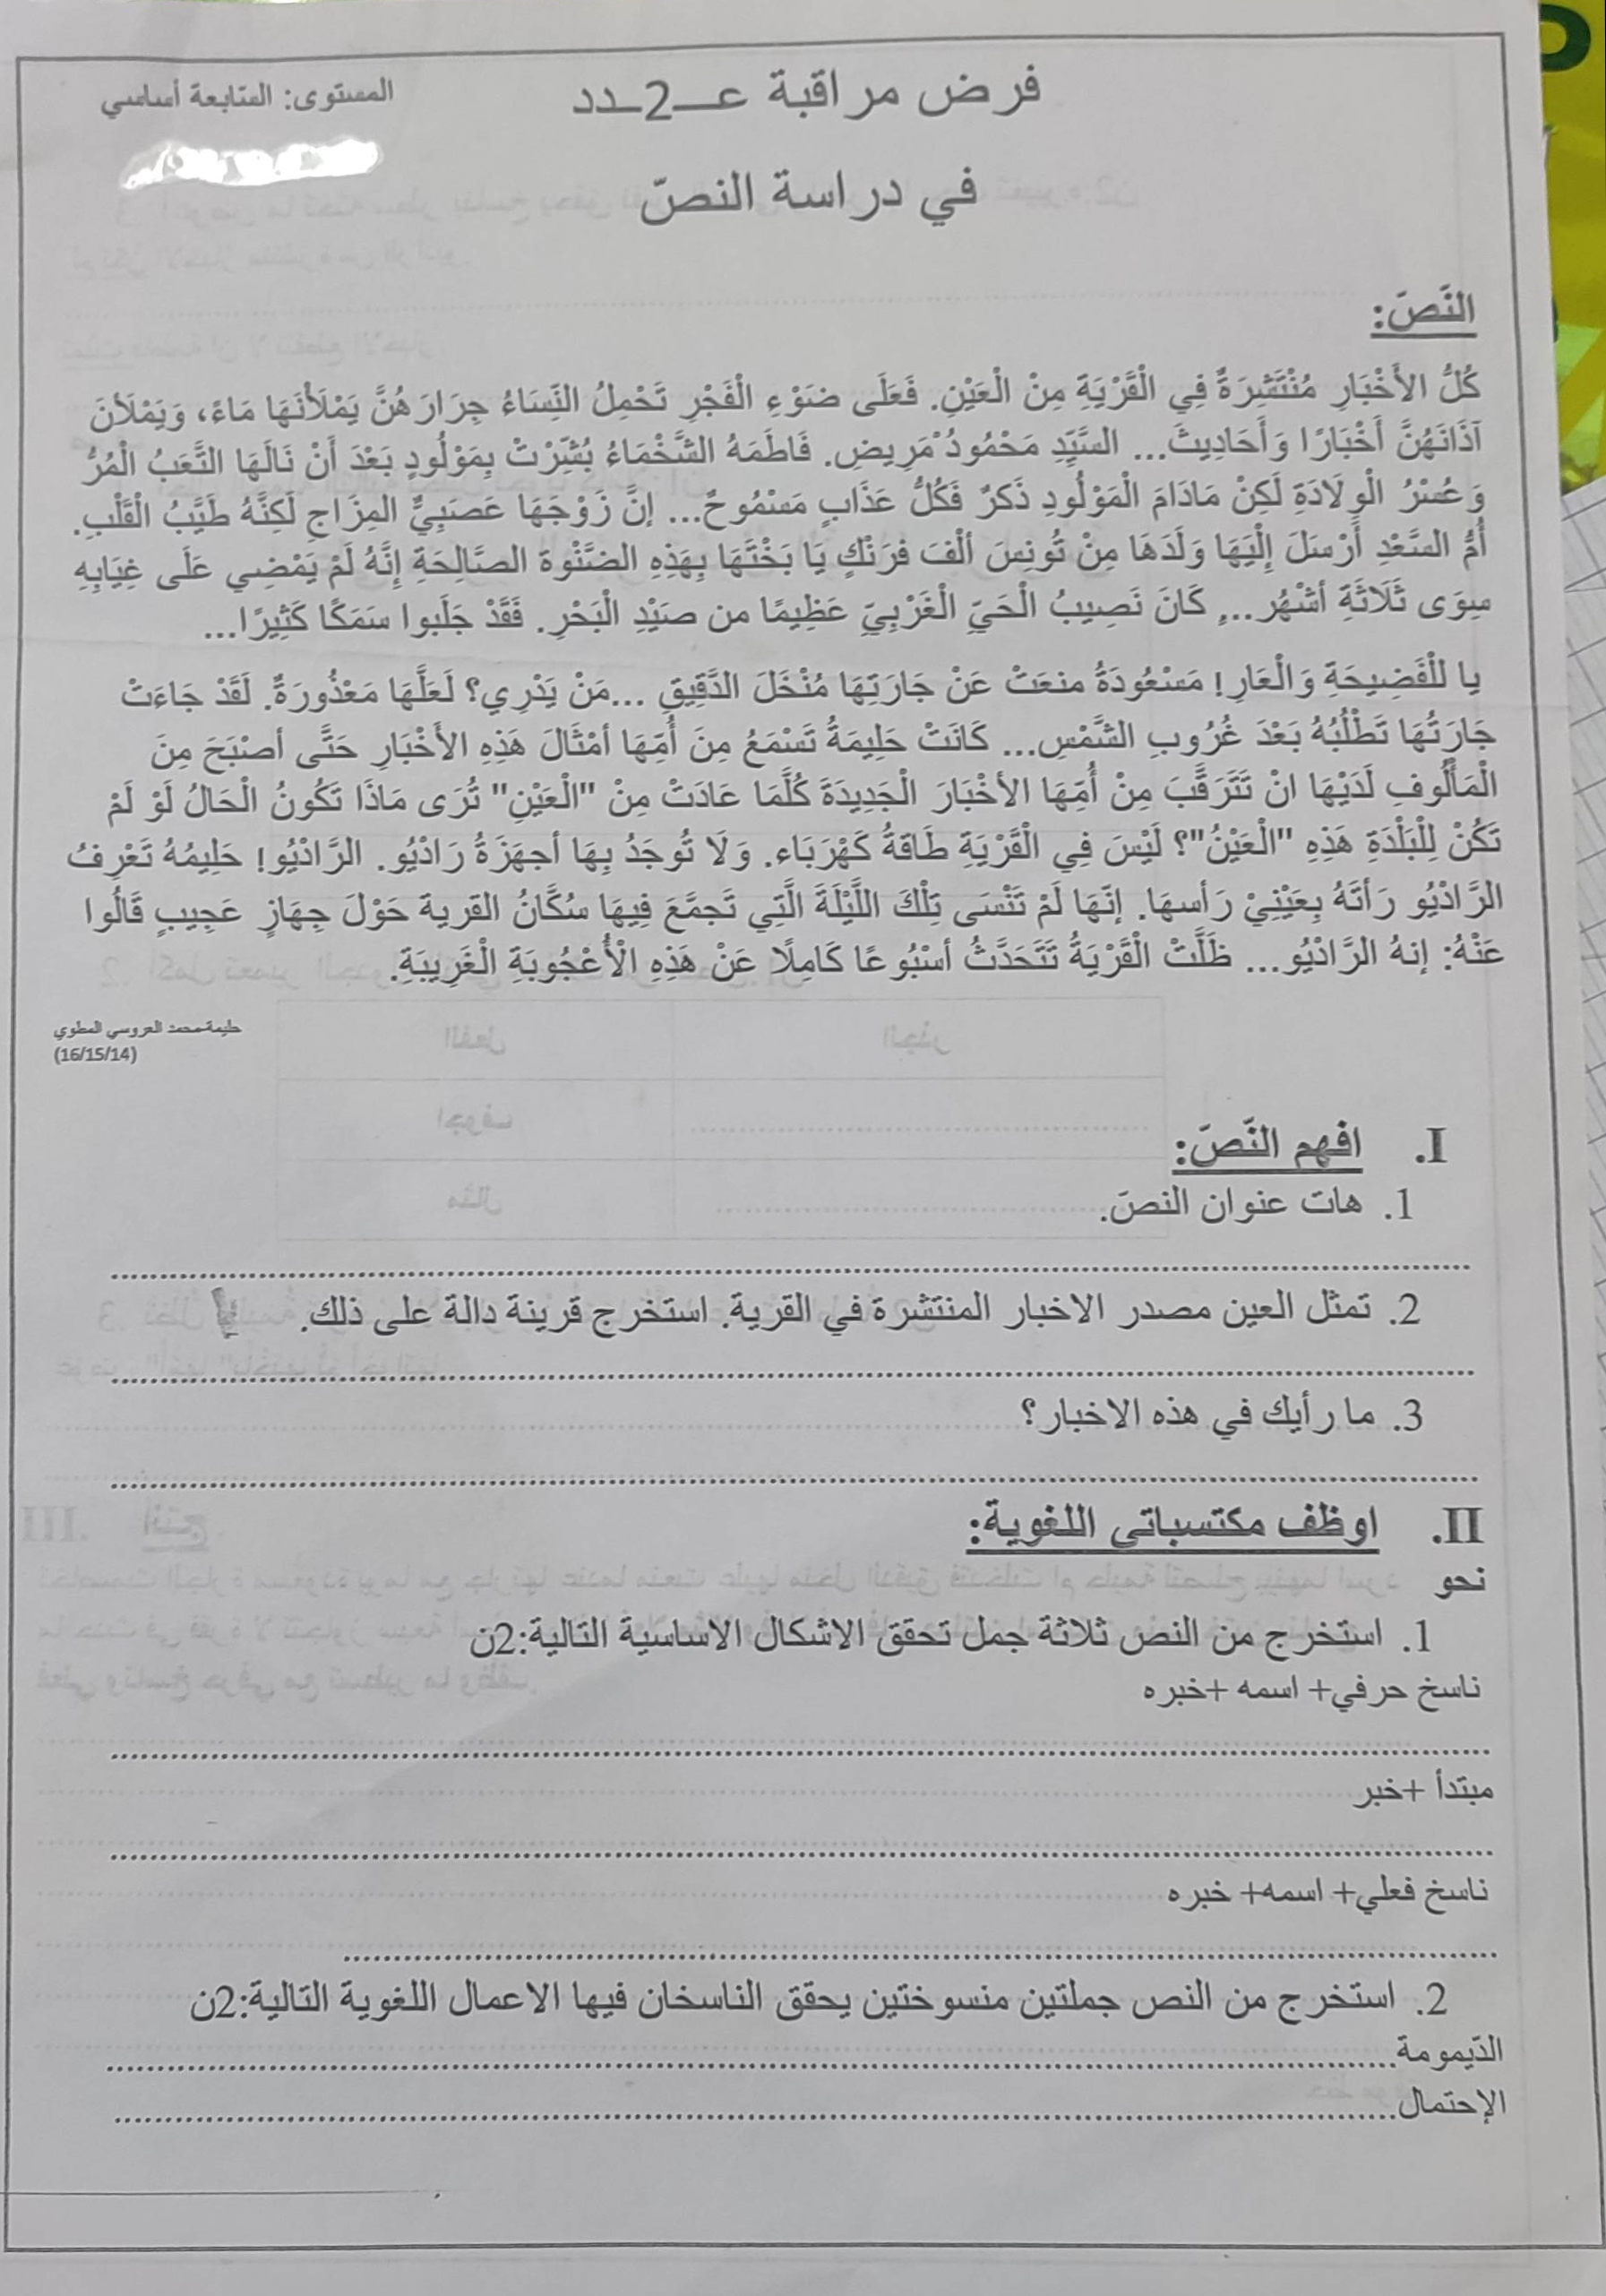 فرض مراقبة عـــ2ــدد
المستوى: السابعة أساسي
في دراسة النصّ
النَّصّ:
كُلُّ الأَخْبَارِ مُنْتَشِرَةٌ فِي الْقَرْيَةِ مِنْ الْعَيْنِ. فَعَلَى ضَوْءِ الْفَجْرِ تَحْمِلُ النِّسَاءُ جِرَارَهُنَّ يَمْلَأْنَهَا مَاءً، وَيَمْلَأْنَ
آذَانَهُنَّ أَخْبَارًا وَأَحَادِيثَ... السَّيِّدِ مَحْمُودْ مَرِيضٍ. فَاطَمَهُ الشَّخْمَاءُ بُشِّرْتْ بِمَوْلُودٍ بَعْدَ أَنْ نَالَهَا التَّعَبُ الْمُرُّ
وَعُسْرُ الْوِلَادَةِ لَكِنْ مَادَامَ الْمَوْلُودِ ذَكرٌ فَكُلُّ عَذَابٍ مَسْمُوحٌ... إِنَّ زَوْجَهَا عَصَبِيٌّ المِزَاجِ لَكِنَّهُ طَيِّبُ الْقَلْبِ.
أُمُّ السَّعْدِ أَرْسَلَ إِلَيْهَا وَلَدَهَا مِنْ تُونِسَ أَلْفَ فرَنْكٍ يَا بَخْتَهَا بِهَذِهِ الضَّنْوة الصَّالِحَةِ إِنَّهُ لَمْ يَمْضِي عَلَى غِيَابِهِ
سِوَى ثَلَاثَةِ أَشْهُر... كَانَ نَصِيبُ الْحَيِّ الْغَرْبِيِّ عَظِيمًا من صَيْدِ الْبَحْرِ. فَقَدْ جَلَبوا سَمَكًا كَثِيرًا...
يا للْفَضِيحَةِ وَالْعَارِ! مَسْعُودَةُ منعَتْ عَنْ جَارَتِهَا مُنْخَلَ الدَّقِيقِ ...مَنْ يَدْرِي؟ لَعَلَّهَا مَعْذُورَةٌ. لَقَدْ جَاءَتْ
جَارَتُهَا تَطْلُبُهُ بَعْدَ غُرُوبِ الشَّمْسِ... كَانَتْ حَلِيمَةُ تَسْمَعُ مِنَ أُمِّهَا أَمْثَالَ هَذِهِ الأَخْبَارِ حَتَّى أَصْبَحَ مِنَ
الْمَأْلُوفِ لَدَيْهَا انْ تَتَرَقَّبَ مِنْ أُمِّهَا الأَخْبَارَ الْجَدِيدَةَ كُلَّمَا عَادَتْ مِنْ "الْعَيْنِ" تُرَى مَاذَا تَكُونُ الْحَالُ لَوْ لَمْ
تَكُنْ لِلْبَلْدَةِ هَذِهِ "الْعَيْنُ"؟ لَيْسَ فِي الْقَرْيَةِ طَاقةُ كَهْرَبَاء. وَلَا تُوجَدُ بِهَا أجهَزَةُ رَادْيُو. الرَّادْيُو! حَلِيمُهُ تَعْرِفُ
الرَّادْيُو رَأتَهُ بِعَيْنِيْ رَأسهَا. إنَّهَا لَمْ تَنْسَى تِلْكَ اللَّيْلَةَ الَّتِي تَجمَّعَ فِيهَا سُكَّانُ القرية حَوْلَ جِهَازٍ عَجِيبٍ قَالُوا
عَنْهُ: إنهُ الرَّادْيُو... ظَلَّتْ الْقَرْيَةُ تَتَحَدَّثُ أسْبُوعًا كَامِلًا عَنْ هَذِهِ الْأُعْجُوبَةِ الْغَرِيبَةِ.
حليمة-محمد العروسي المطوي
(16/15/14)
I. افهم النّصّ:
1. هات عنوان النصّ.
2. تمثل العين مصدر الاخبار المنتشرة في القرية. استخرج قرينة دالة على ذلك.
3. ما رأيك في هذه الاخبار؟
II. اوظف مكتسباتي اللغوية:
نحو
1. استخرج من النص ثلاثة جمل تحقق الاشكال الاساسية التالية:2ن
ناسخ حرفي+ اسمه +خبره
مبتدأ +خبر
ناسخ فعلي+ اسمه+ خبره
2. استخرج من النص جملتين منسوختين يحقق الناسخان فيها الاعمال اللغوية التالية:2ن
الدّيمومة
الإحتمال